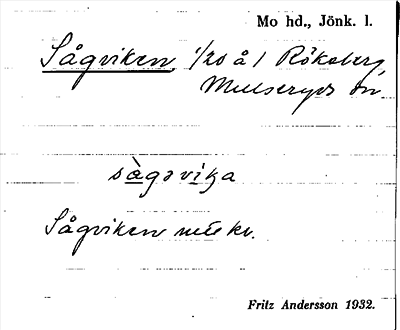 Mo hd., Jönk. l.
Sågviken, 1/20 å 1 Råkaberg,
Mulseryds sn
sàgəviƞa
Sågviken
Fritz Andersson 1932.